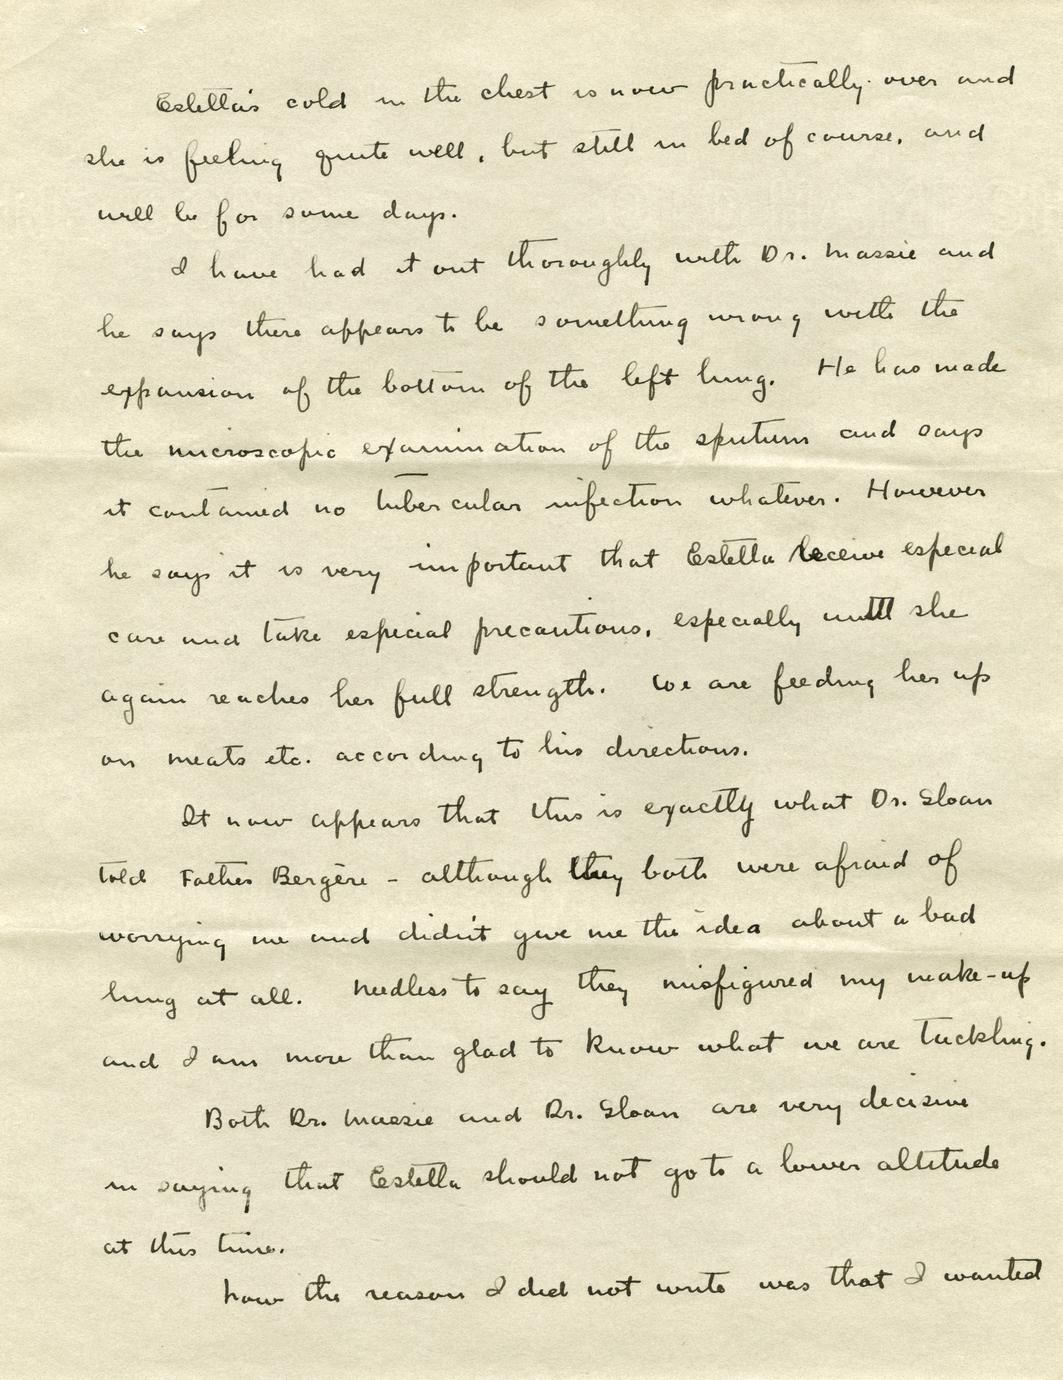 Estella's cold in the chest is now practically over and
she is feeling quite well, but still in bed of course, and
will be for some days.
I have had it out thoroughly with Dr. Massie and
he says there appears to be something wrong with the
expansion of the bottom of the left lung. He has made
the microscopic examination of the sputum and says
it contained no tubercular infection whatever. However
he says it is very important that Estella receive especial
care and take especial precautions, especially until she
again reaches her full strength. We are feeding her up
on meats etc. according to his directions.
It now appears that this is exactly what Dr. Sloan
told Father Bergère - although they both were afraid of
worrying me and didn't give me the idea about a bad
lung at all. Needless to say they misfigured my make-up
and I am more than glad to know what we are tackling.
Both Dr. Massie and Dr. Sloan are very decisive
in saying that Estella should not go to a lower altitude
at this time.
Now the reason I did not write was that I wanted